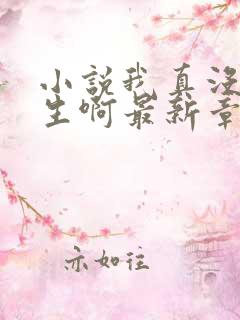 小說我真沒
生啊最新章
示如往